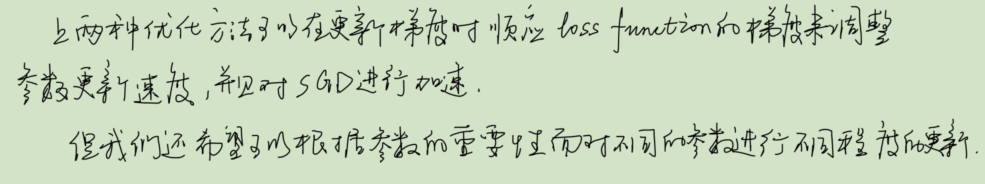 上两种优化方法可以在更新梯度时顺应 loss function 的梯度来调整
参数更新速度,并且对SGD进行加速.
但我们还希望可以根据参数的重要性而对不同的参数进行不同程度的更新.